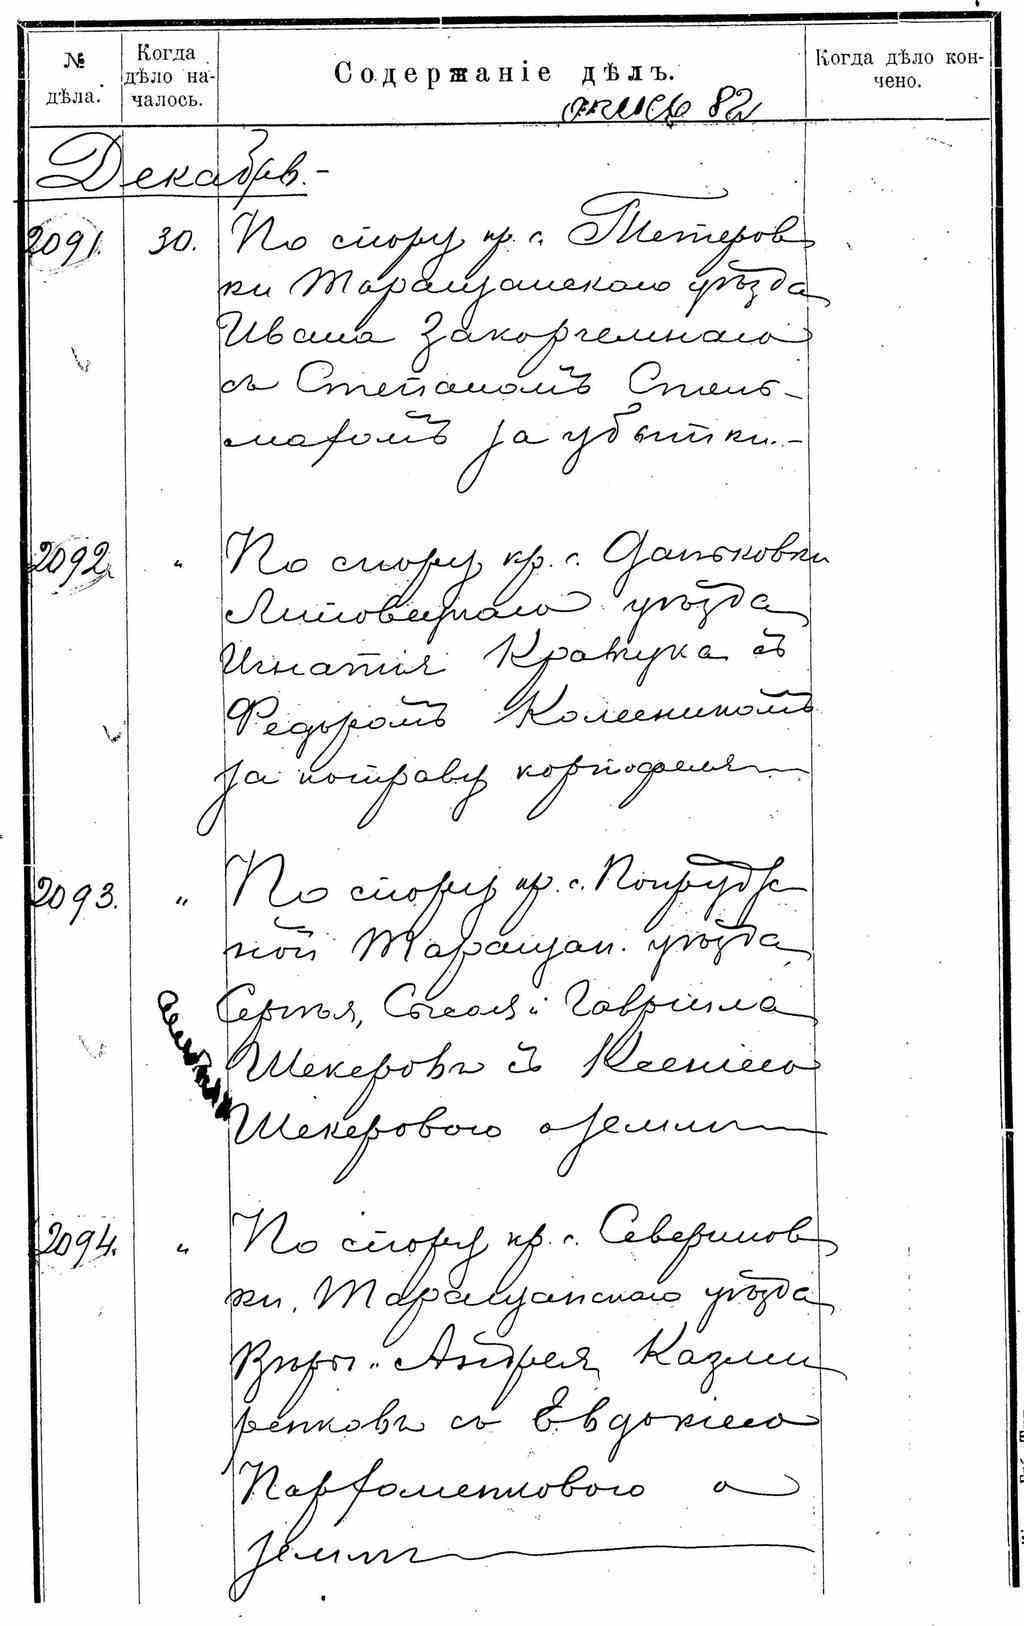 № дѣла.
Когда дѣло на-
чалось.
Содержаніе дѣлъ.
Когда дѣло кон-
чено.
опись 82
Декабрь.-
2091. 30. По спору кр. с. Тетеров
ки Таращанскаго уѣзда
Ивана Закорчемнаго
съ Степаномъ Стель-
махомъ за убытки.-
2092 " По спору кр. с.
Липовецкаго уѣзда
Игнатія Кравчука съ
Федоромъ Колесникомъ
за потраву картофеля
2093. " По спору кр. с.
ной Таращан. уѣзда
Сергѣя, и Гавріила
Шекеровъ съ Ксеніею
Шекеровою о земли
2094. " По спору кр. с. Северинов
ки, Таращанскаго уѣзда
Вѣры и Андрея Казми
ренковъ съ Евдокіею
Пархоменковою о
земли